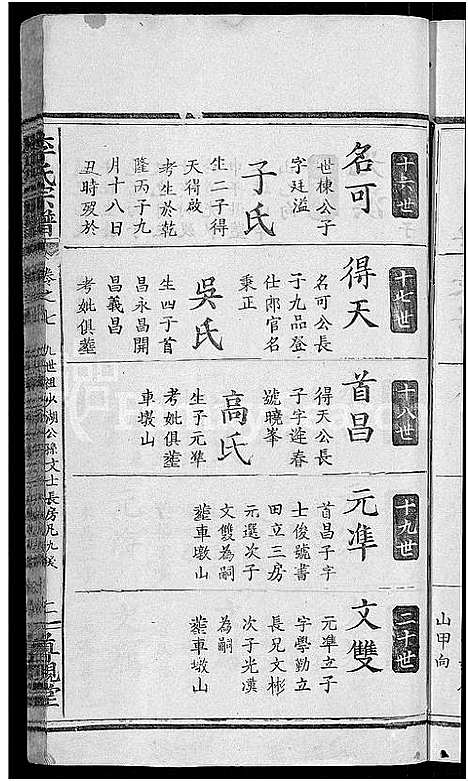 十六世
名可
世棟公子
字廷溢
子氏
生二子得
天得啟
考生於乾
隆丙子九
月十八日
丑時歿於
十七世
得天
名可公長
子九品登
仕郎官名
秉正
吳氏
生四子首
昌永昌開
昌義昌
考妣俱塟
十八世
首昌
得天公長
子字遊春
號曉峯
高氏
生子元準
考妣俱塟
車墩山
十九世
元準
首昌子字
士俊號書
田立三房
元選次子
文雙為嗣
塟車墩山
二十世
文雙
元準立子
字學勤立
長兄文彬
次子光漢
為嗣
塟車墩山
李氏宗譜
卷之七
九世祖少湖公孫文士長房凡九
道覌堂
山甲向